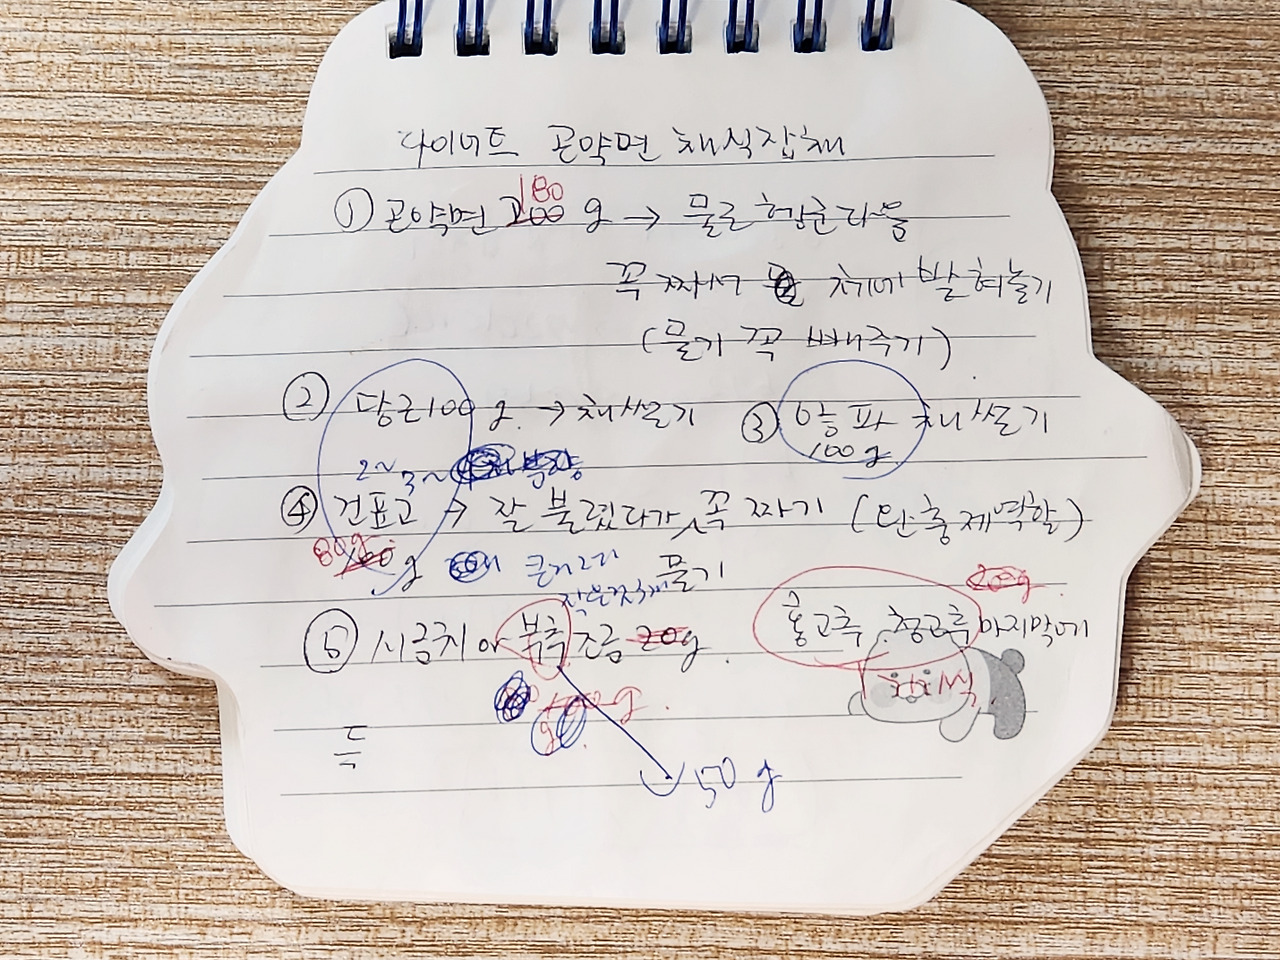 다이어트 곤약면 채식잡채
180
① 곤약면 200 g → 물로 헹군다음
꼭 짜서 체에 받혀놓기
(물기 꼭 빼주기)
② 당근100 g. → 채썰기 ③ 양파 채썰기
100g
2~3~
④ 건표고 → 잘 불렸다가 꼭 짜기 (단충제역할)
80g 큰거2과 물기
200g
⑤ 시금치 or 부추 조금 20g 홍고추 청고추 마지막에
100g
50 g